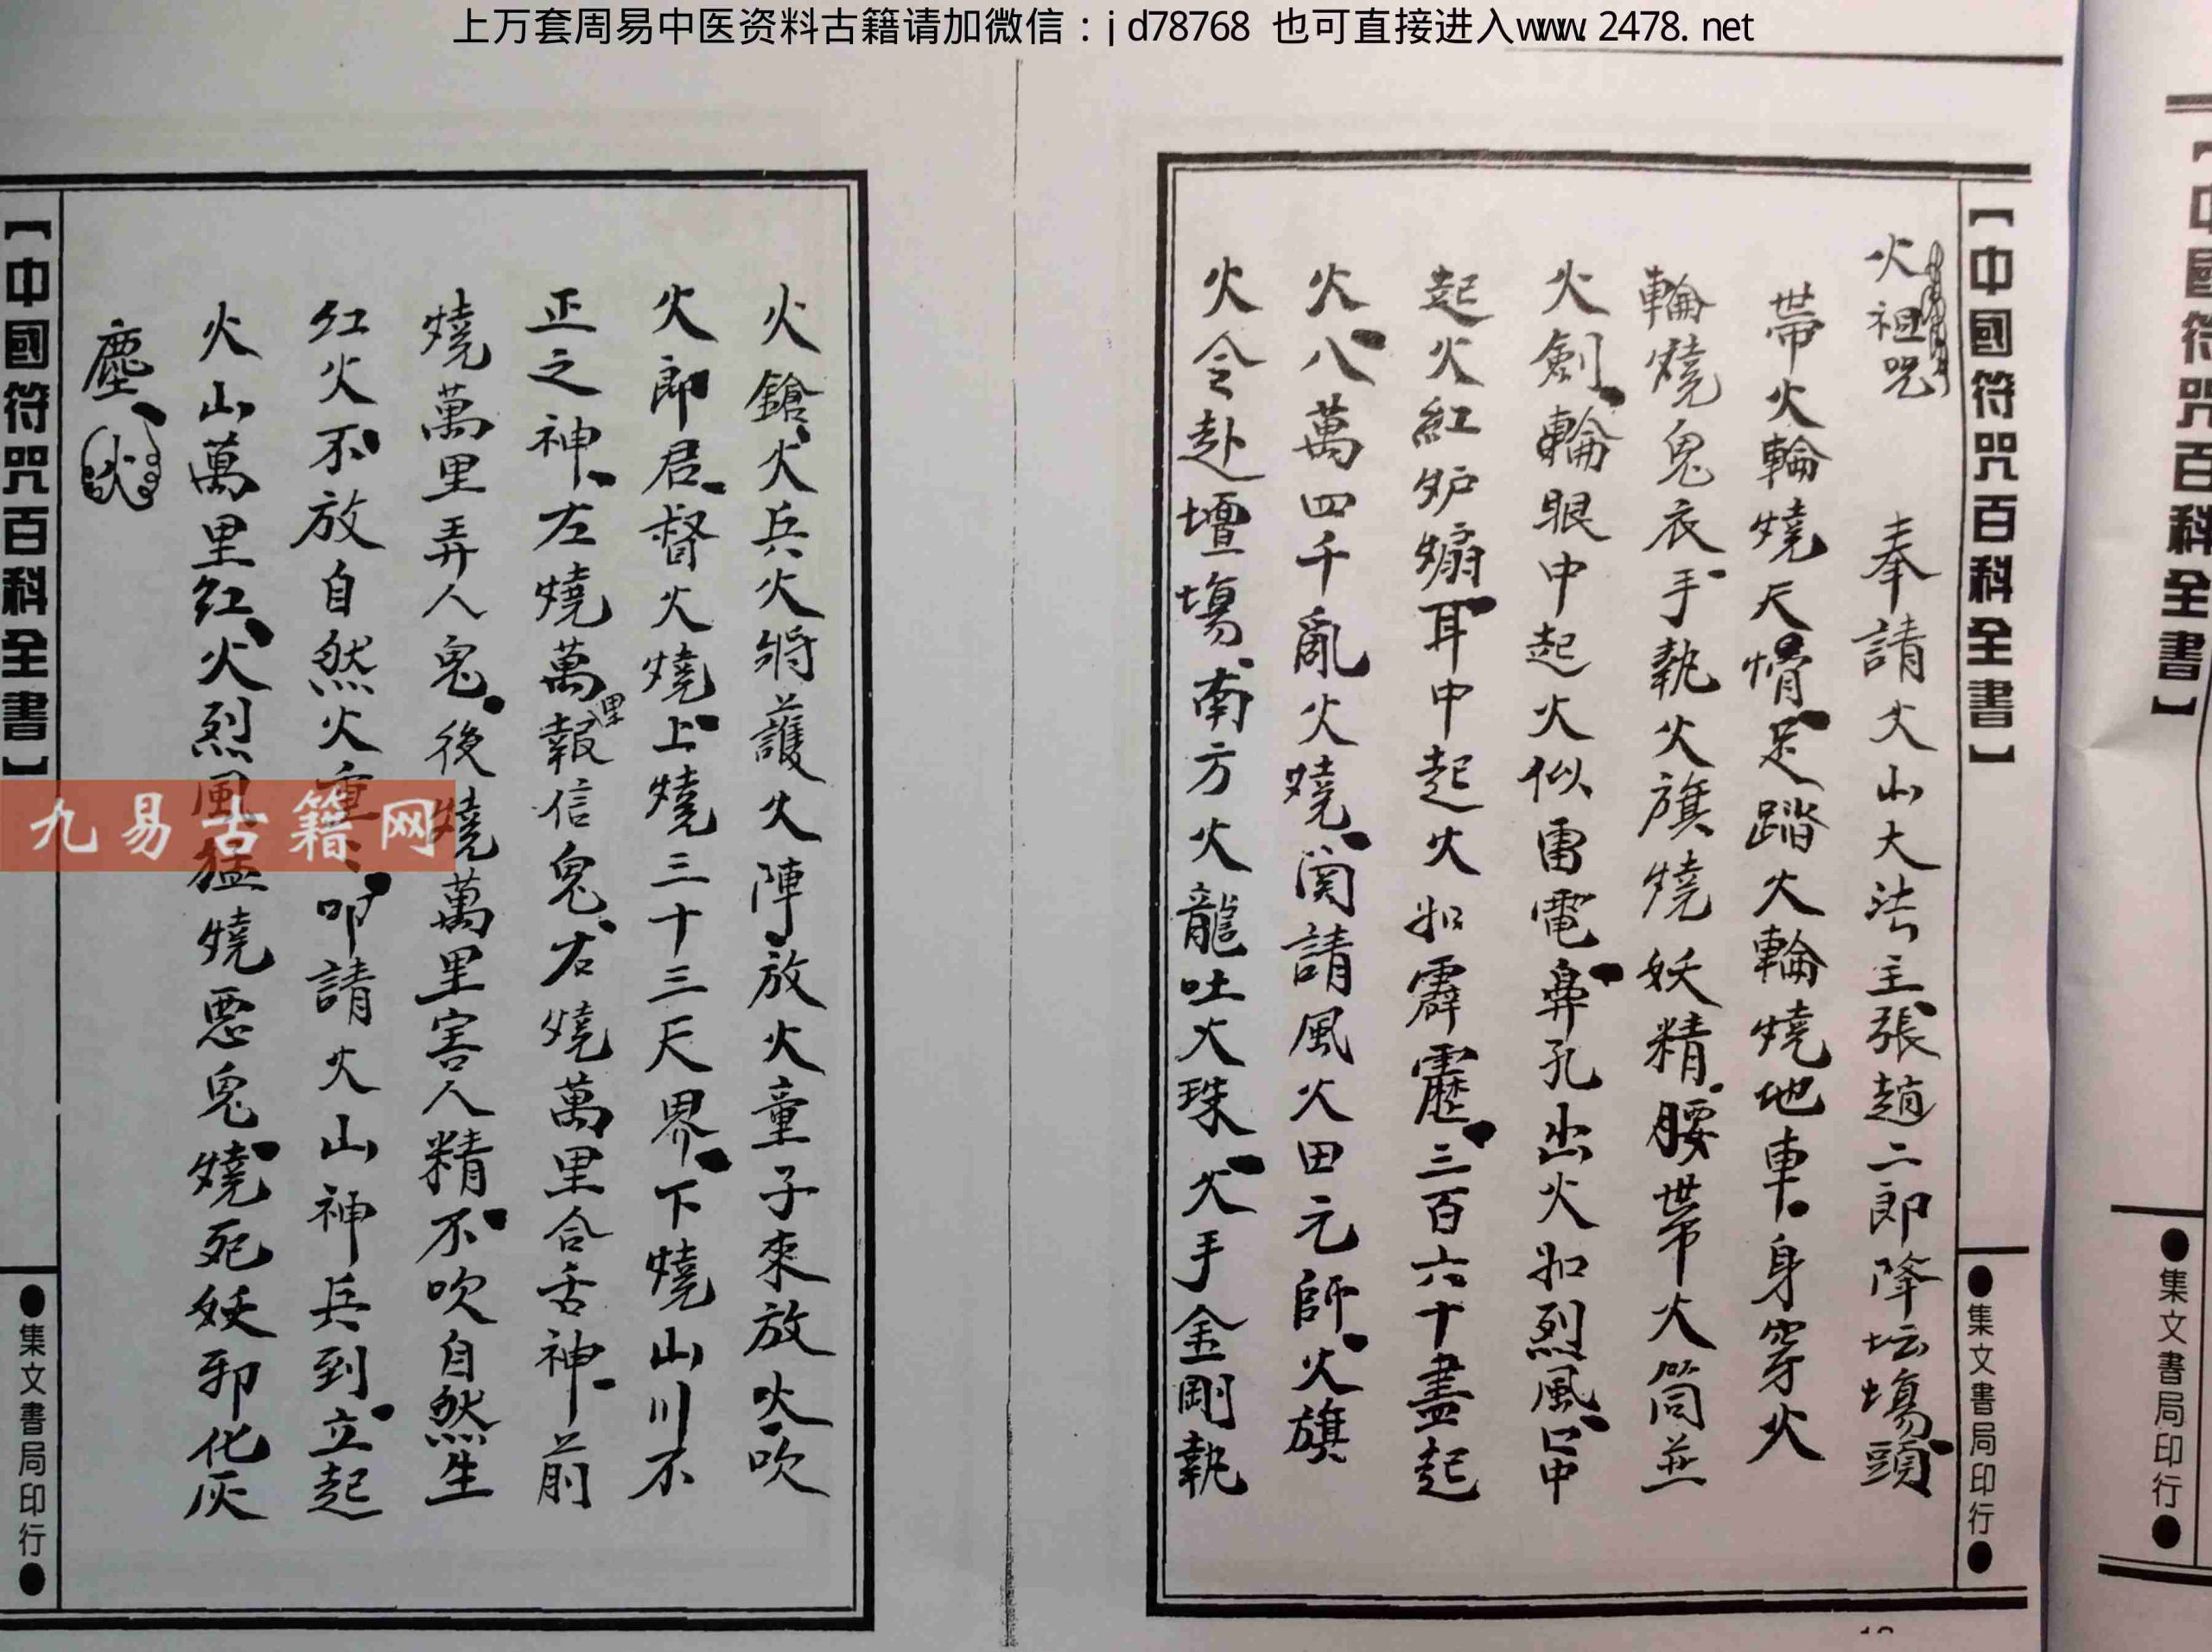 上万套周易中医资料古籍请加微信：jd78768 也可直接进入www.2478.net
【中國符咒百科全書】
●集文書局印行●
【中國符咒百科全書】
●集文書局印行●
火祖咒
奉請火山大法主張趙二郎降坛塲頭
帶火輪燒天 足踏火輪燒地車身穿火
輪燒鬼衣手執火旗燒妖精腰帶火筒並
火劍輪眼中起火似雷電鼻孔出火如烈風口中
起火紅炉煽耳中起火如霹靂三百六十盡起
火八萬四千亂火燒関請風火田元師火旗
火令赴壇塲南方火龍吐火珠火手金剛執
火鎗火兵火將護火陣放火童子來放火吹
火郎君督火火燒上燒三十三天界下燒山川不
正之神左燒萬里報信鬼右燒萬里合舌神前
燒萬里弄人鬼後燒萬里害人精不吹自然生
红火不放自然火重々叩請火山神兵到立起
火山萬里红火烈風猛燒惡鬼燒死妖邪化灰
塵火
【中國符咒百科全書】
●集文書局印行●
九易古籍网